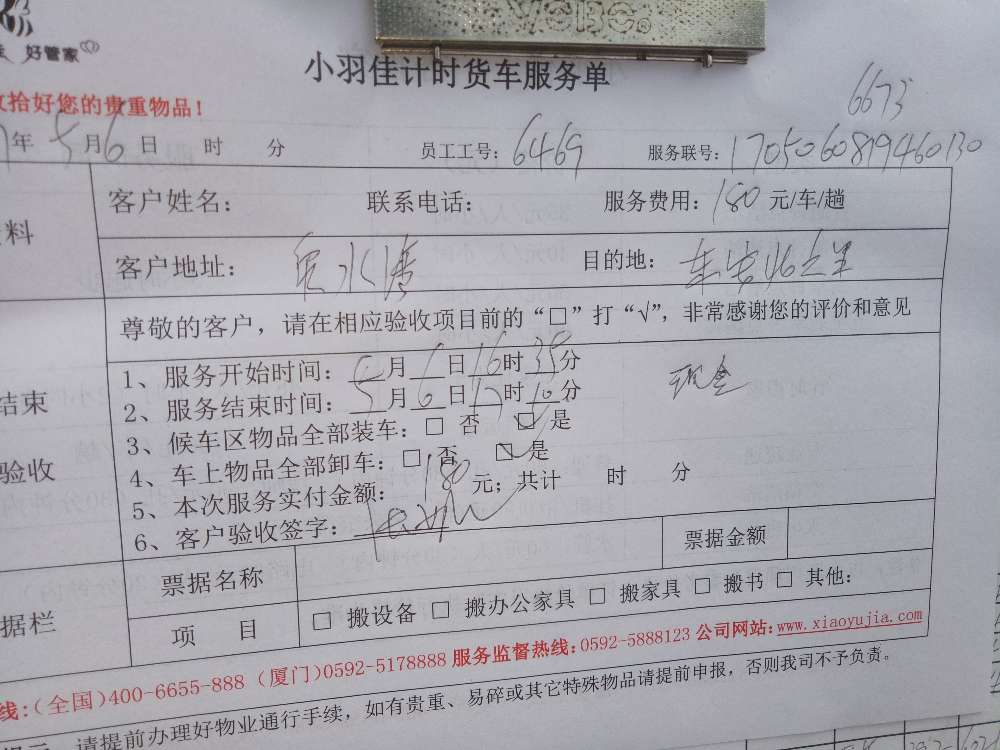 好管家
小羽佳计时货车服务单
拾好您的贵重物品！
6673
年5月6日 时 分 员工工号：6469 服务联号：1705060819460130
料 客户姓名： 联系电话： 服务费用：180元/车/趟
客户地址： 泉水湾 目的地：
尊敬的客户，请在相应验收项目前的“□”打“√”，非常感谢您的评价和意见
结束
1、服务开始时间：5月6日16时35分
现金
2、服务结束时间：5月6日17时10分
3、候车区物品全部装车：□ 否 ☑ 是
验收
4、车上物品全部卸车：□ 否 ☑ 是
5、本次服务实付金额：180元；共计 时 分
6、客户验收签字：
据栏
票据名称 票据金额
项 目 □ 搬设备 □ 搬办公家具 □ 搬家具 □ 搬书 □ 其他：
线：（全国）400-6655-888（厦门）0592-5178888 服务监督热线：0592-5888123 公司网站：www.xiaoyujia.com
请提前办理好物业通行手续，如有贵重、易碎或其它特殊物品请提前申报，否则我司不予负责。